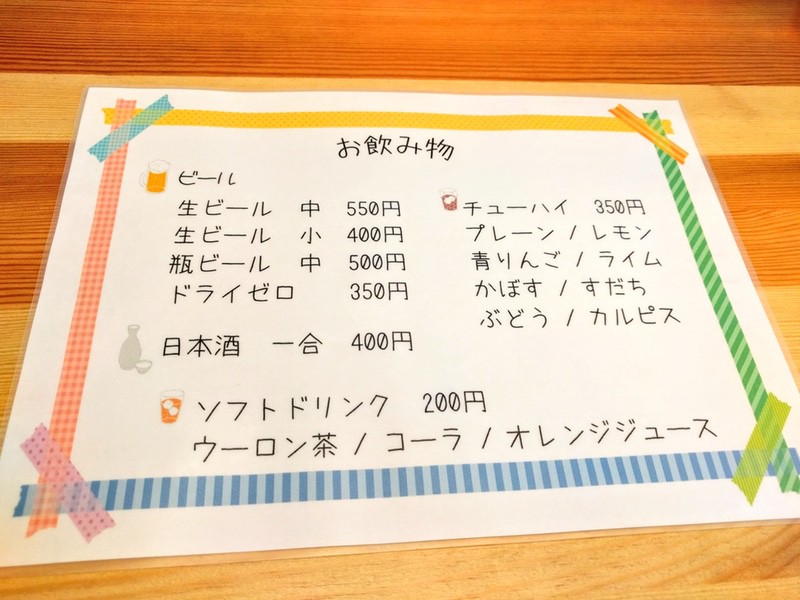 お飲み物
ビール
生ビール 中 550円
生ビール 小 400円
瓶ビール 中 500円
ドライゼロ 350円
日本酒 一合 400円
チューハイ 350円
プレーン / レモン
青りんご / ライム
かぼす / すだち
ぶどう / カルピス
ソフトドリンク 200円
ウーロン茶 / コーラ / オレンジジュース